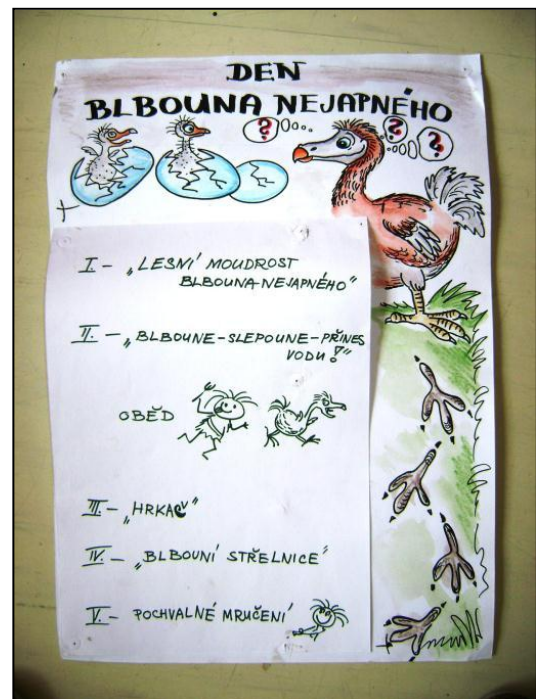 DEN
BLBOUNA NEJAPNÉHO
? ? ?
I - „LESNÍ MOUDROST
BLBOUNA NEJAPNÉHO"
II. - „BLBOUNE-SLEPOUNE-PŘINES
VODU!"
OBĚD
III - „HRKAČ"
IV. - „BLBOUNÍ STŘELNICE"
V - POCHVALNÉ MRUČENÍ